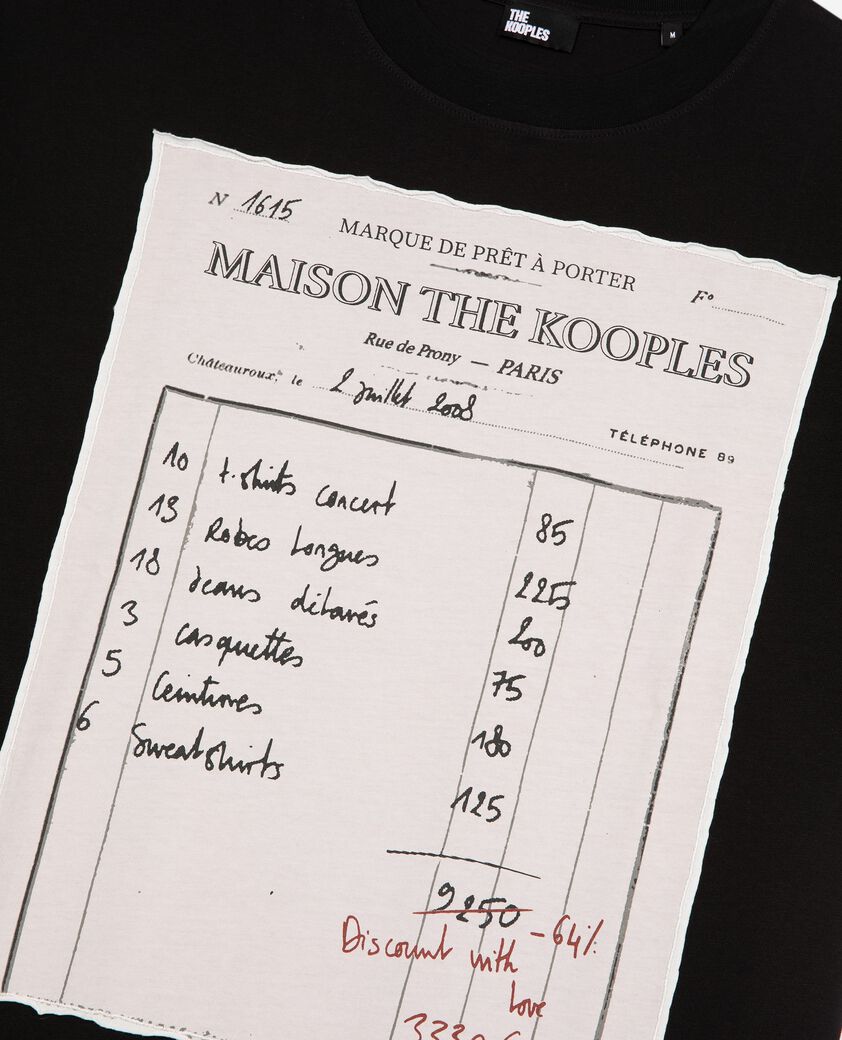 THE
KOOPLES
M
N 1615
MARQUE DE PRÊT À PORTER
F°
MAISON THE KOOPLES
Rue de Prony — PARIS
Châteauroux, le 2 juillet 2008
TÉLÉPHONE 89
10 t.shirts concert 85
13 Robes longues 225
18 Jeans délavés 200
3 casquettes 75
5 Ceintures 180
6 Sweatshirts 125
9250 -64%
Discount with
love